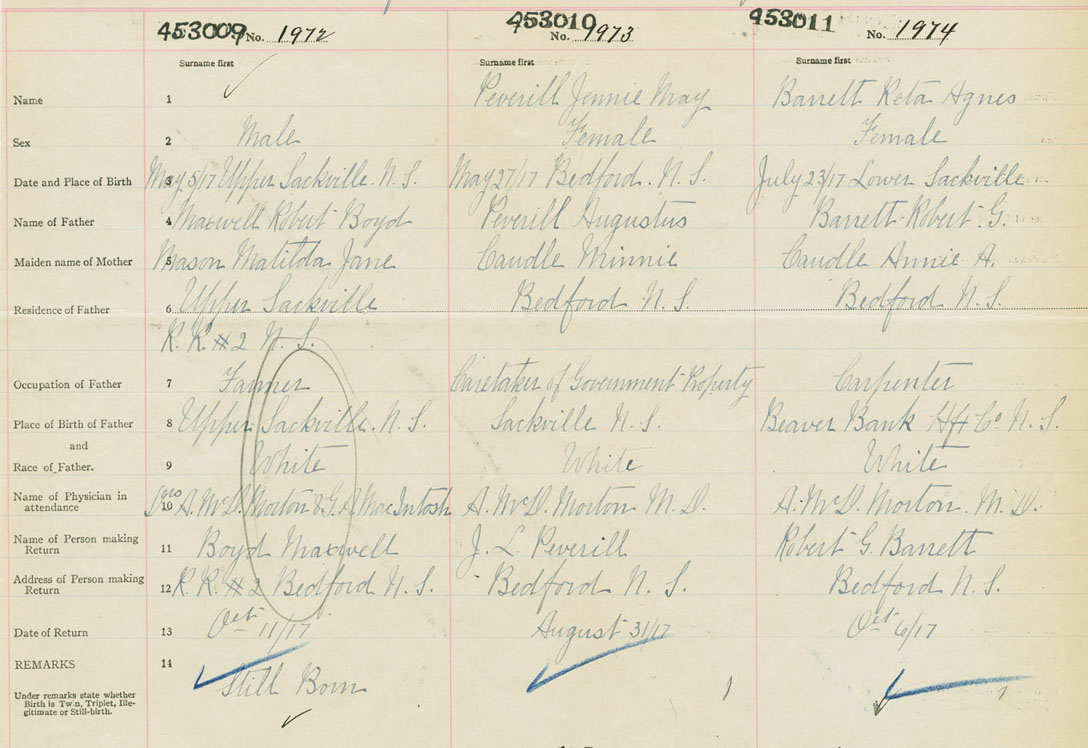 453009 No. 1972
453010 No. 1973
453011 No. 1974
Surname first
Surname first
Surname first
Name 1 Peverill Jennie May Barrett Reta Agnes
Sex 2 Male Female Female
Date and Place of Birth 3 May 5/17 Upper Sackville. N. S. May 27/17 Bedford. N. S. July 23/17 Lower Sackville
Name of Father 4 Maxwell Robert Boyd Peverill Augustus Barrett Robert G.
Maiden name of Mother 5 Mason Matilda Jane Caudle Minnie Caudle Annie A.
Residence of Father 6 Upper Sackville Bedford N. S. Bedford N. S.
R. R. #2 N. S.
Occupation of Father 7 Farmer Caretaker of Government Property Carpenter
Place of Birth of Father 8 Upper Sackville. N. S. Sackville N. S. Beaver Bank Hfx Co. N. S.
and
Race of Father. 9 White White White
Name of Physician in
attendance 10 Drs A. McD. Morton & G. A. MacIntosh A. McD. Morton M. D. A. McD. Morton M. D.
Name of Person making
Return 11 Boyd Maxwell J. L. Peverill Robert G. Barrett
Address of Person making
Return 12 R. R. #2 Bedford N. S. Bedford N. S. Bedford N. S.
Date of Return 13 Oct 11/17 August 31/17 Oct 6/17
REMARKS 14 Still Born
Under remarks state whether
Birth is Twin, Triplet, Ille-
gitimate or Still-birth.